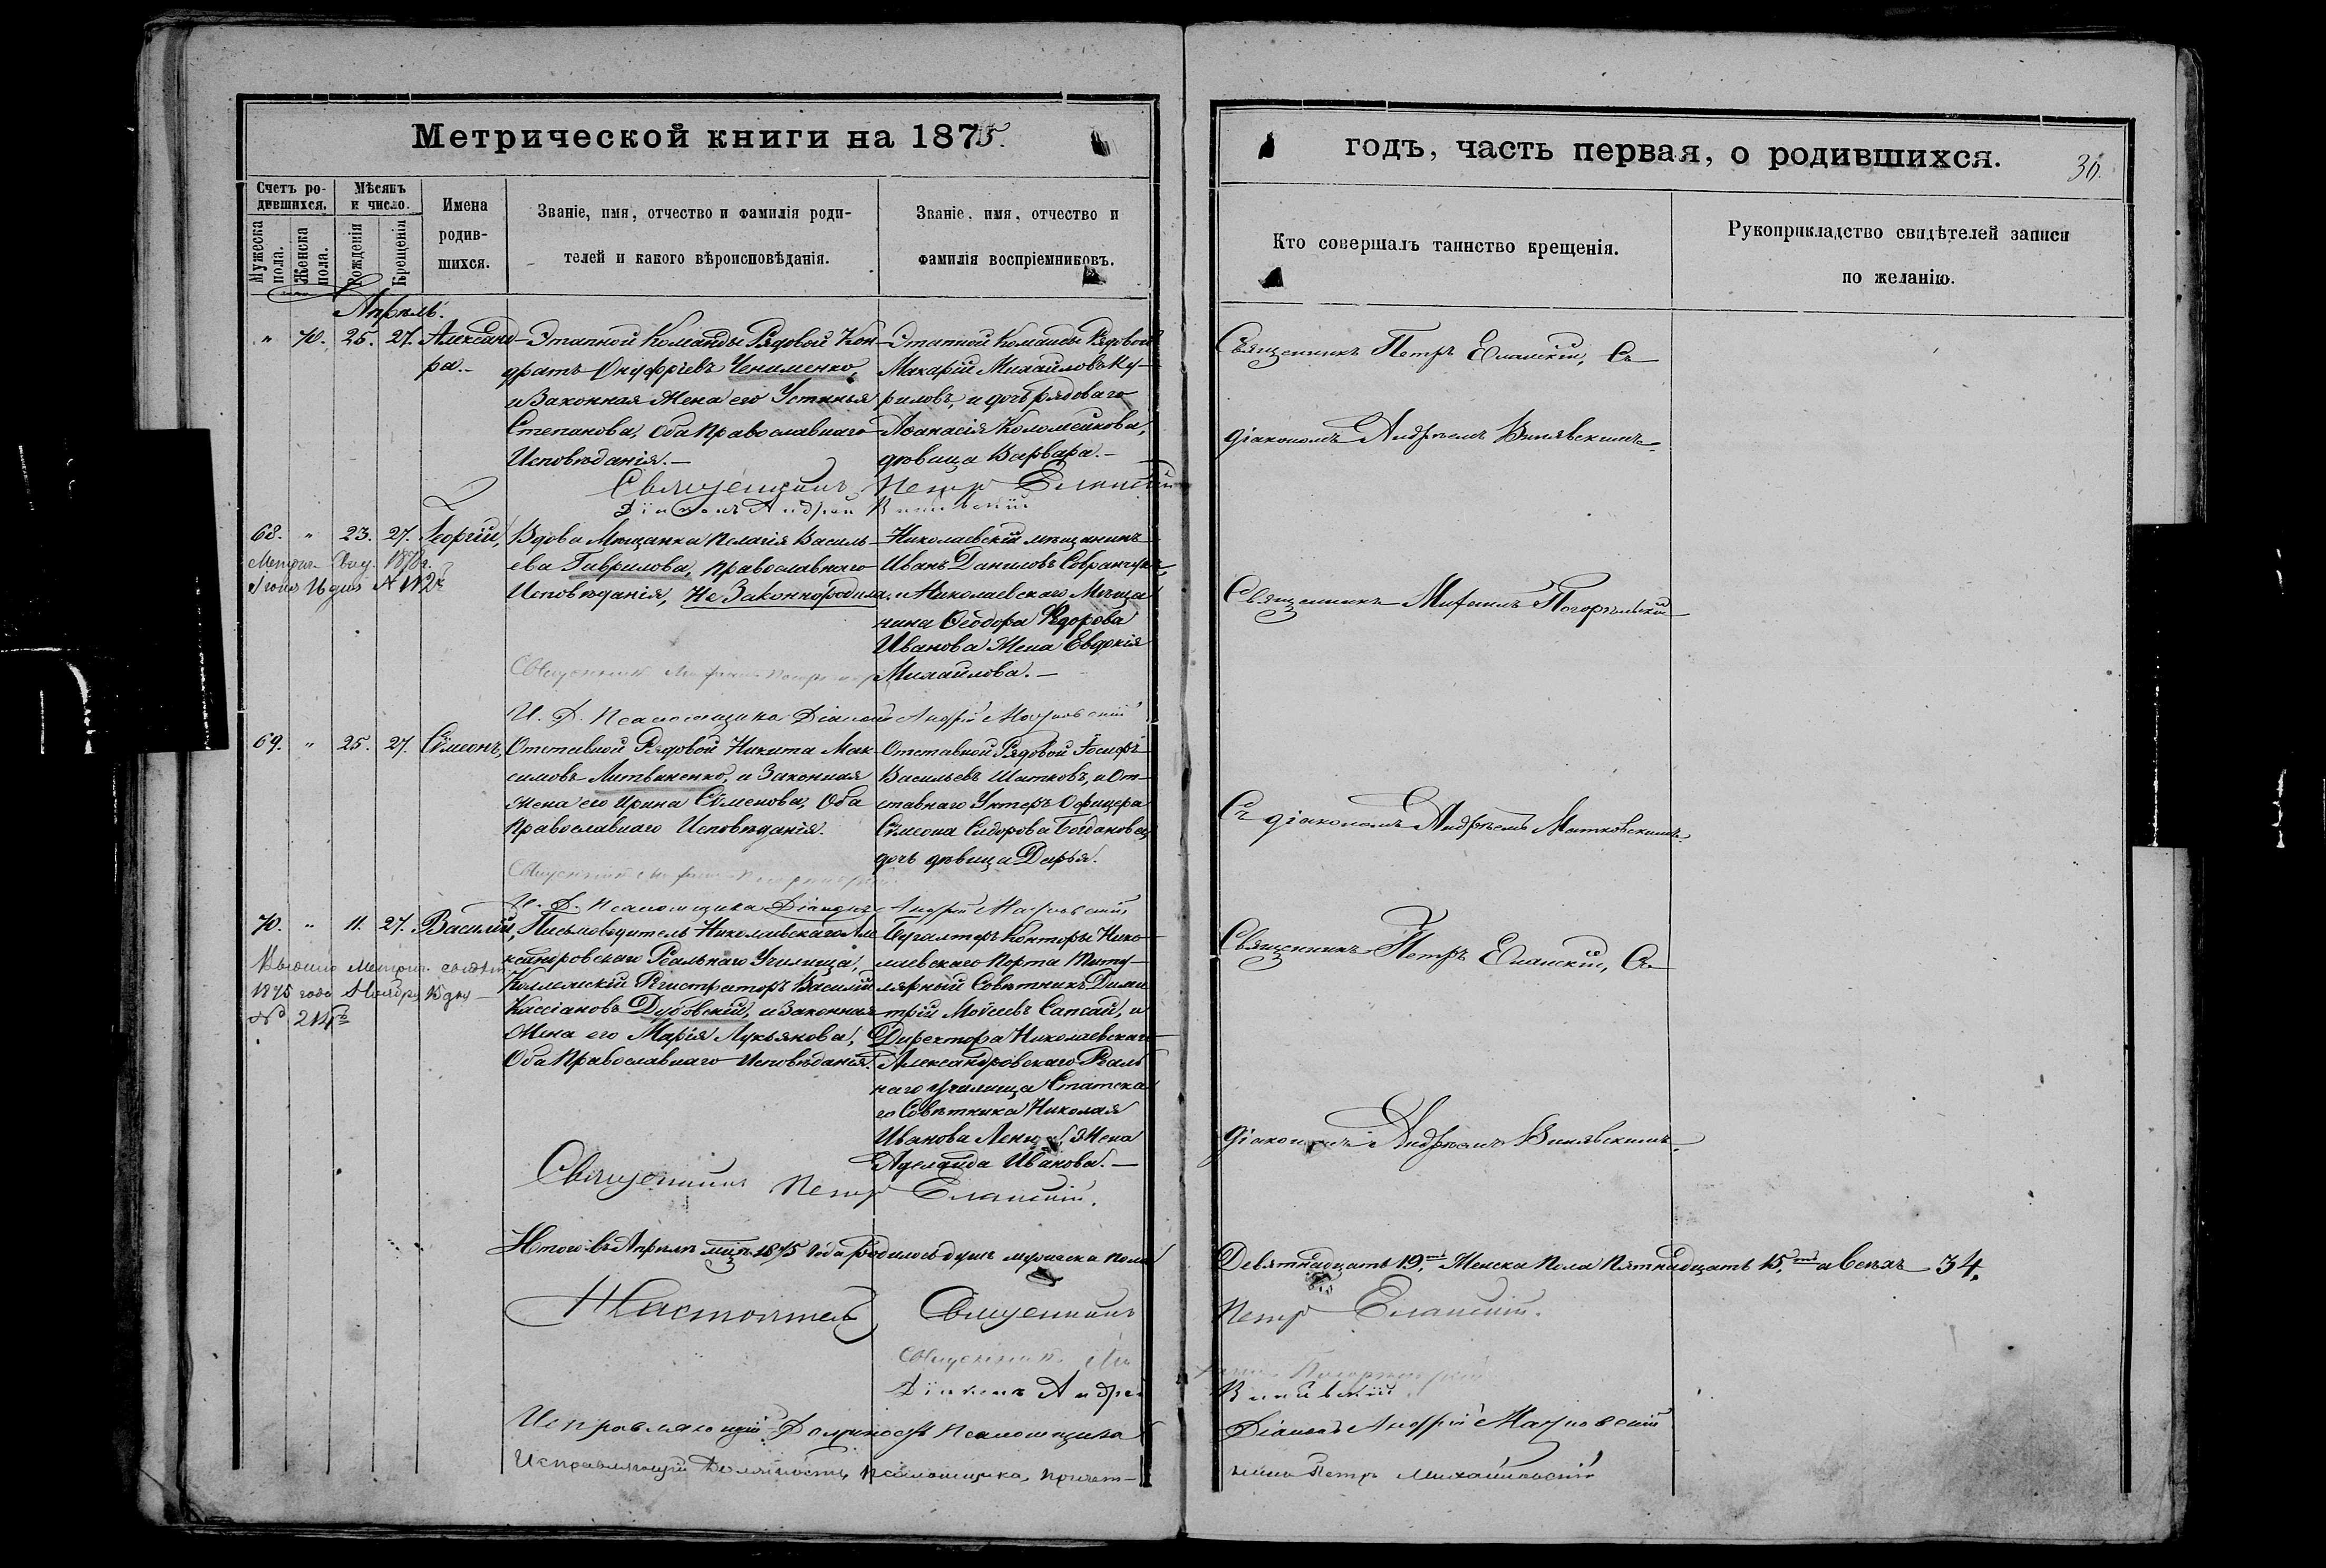 Метрической книги на 1875.
годъ, часть первая, о родившихся.
36.
Счетъ ро-
дившихся.
Мѣсяцъ
и число.
Мужеска
пола.
Женска
пола.
Рожденія
Крещенія
Имена
родив-
шихся.
Званіе, имя, отчество и фамилія роди-
телей и какого вѣроисповѣданія.
Званіе, имя, отчество и
фамилія воспріемниковъ.
Кто совершалъ таинство крещенія.
Рукоприкладство свидѣтелей записи
по желанію.
Апрѣль.
" 70. 25. 27. Александ-
ра.
Этапной Команды Рядовой Кон-
дратъ Онуфріевъ
и Законная Жена его Устинья
Степанова, Оба Православнаго
Исповѣданія.
Этапной Команды Рядовой
Макарій Михаиловъ Ку-
риловъ, и дочь рядоваго
Аѳанасія Коломейкова,
дѣвица Варвара.
Священникъ Петръ Еланскій
Діаконъ Андрей
Священникъ Петръ Еланскій, Съ
діакономъ Андреемъ
68. " 23. 27. Георгій,
Вдова Мѣщанка Пелагія Василь-
ева Гаврилова, Православнаго
Исповѣданія, Не Законнорожд
Николаевскій мѣщанинъ
Иванъ Даниловъ
и Николаевскаго Мѣща
нина Ѳеодора Ѳедорова
Иванова Жена Евдокія
Михаилова.
Священникъ
И. Д. Псаломщика Діаконъ Андрей
Священникъ
69. " 25. 27. Сѵмеонъ,
Отставной Рядовой Никита Мак
симовъ Литвиненко, и Законная
Жена его Ирина Сѵменова, Оба
Православнаго Исповѣданія.
Отставной Рядовой Іосифъ
Васильевъ Шатковъ, и От-
ставнаго Унтеръ Офицера
Сѵмеона Сидорова Богданова
дочь дѣвица Дарья.
Священникъ
И. Д. Псаломщика Діаконъ Андрей
Съ діакономъ Андреемъ
70. " 11. 27. Василій,
Письмоводитель Николаевскаго Але
ксандровскаго Реальнаго Училища,
Коллежскій Регистраторъ Василій
Кассіановъ Дубовскій, и Законная
Жена его Марія Лукьянова,
Оба Православнаго Исповѣданія.
Бухгалтеръ Конторы Нико-
лаевскаго Порта Титу-
лярный Совѣтникъ Дими
трій Моѵсеевъ Сапсай, и
Директора Николаевскаго
Александровскаго Реаль
наго училища Статска
го Совѣтника Николая
Иванова Жена
Аделаида Иванова.
Метрич.
1875 года Ноября 15 дня
№
Священникъ Петръ Еланскій.
Священникъ Петръ Еланскій, Съ
діакономъ Андреемъ
Итого въ Апрѣлѣ мцѣ 1875 года родилось душъ мужеска пола
Девятнадцать 19, Женска пола Пятнадцать 15, а всѣхъ 34.
Настоятель Священникъ
Петръ Еланскій.
Священникъ
Діаконъ Андрей
Исправляющій Должность Псаломщика
Діаконъ Андрей
Исправляющій Должность Псаломщика, Причет-
никъ Петръ Михайловскій